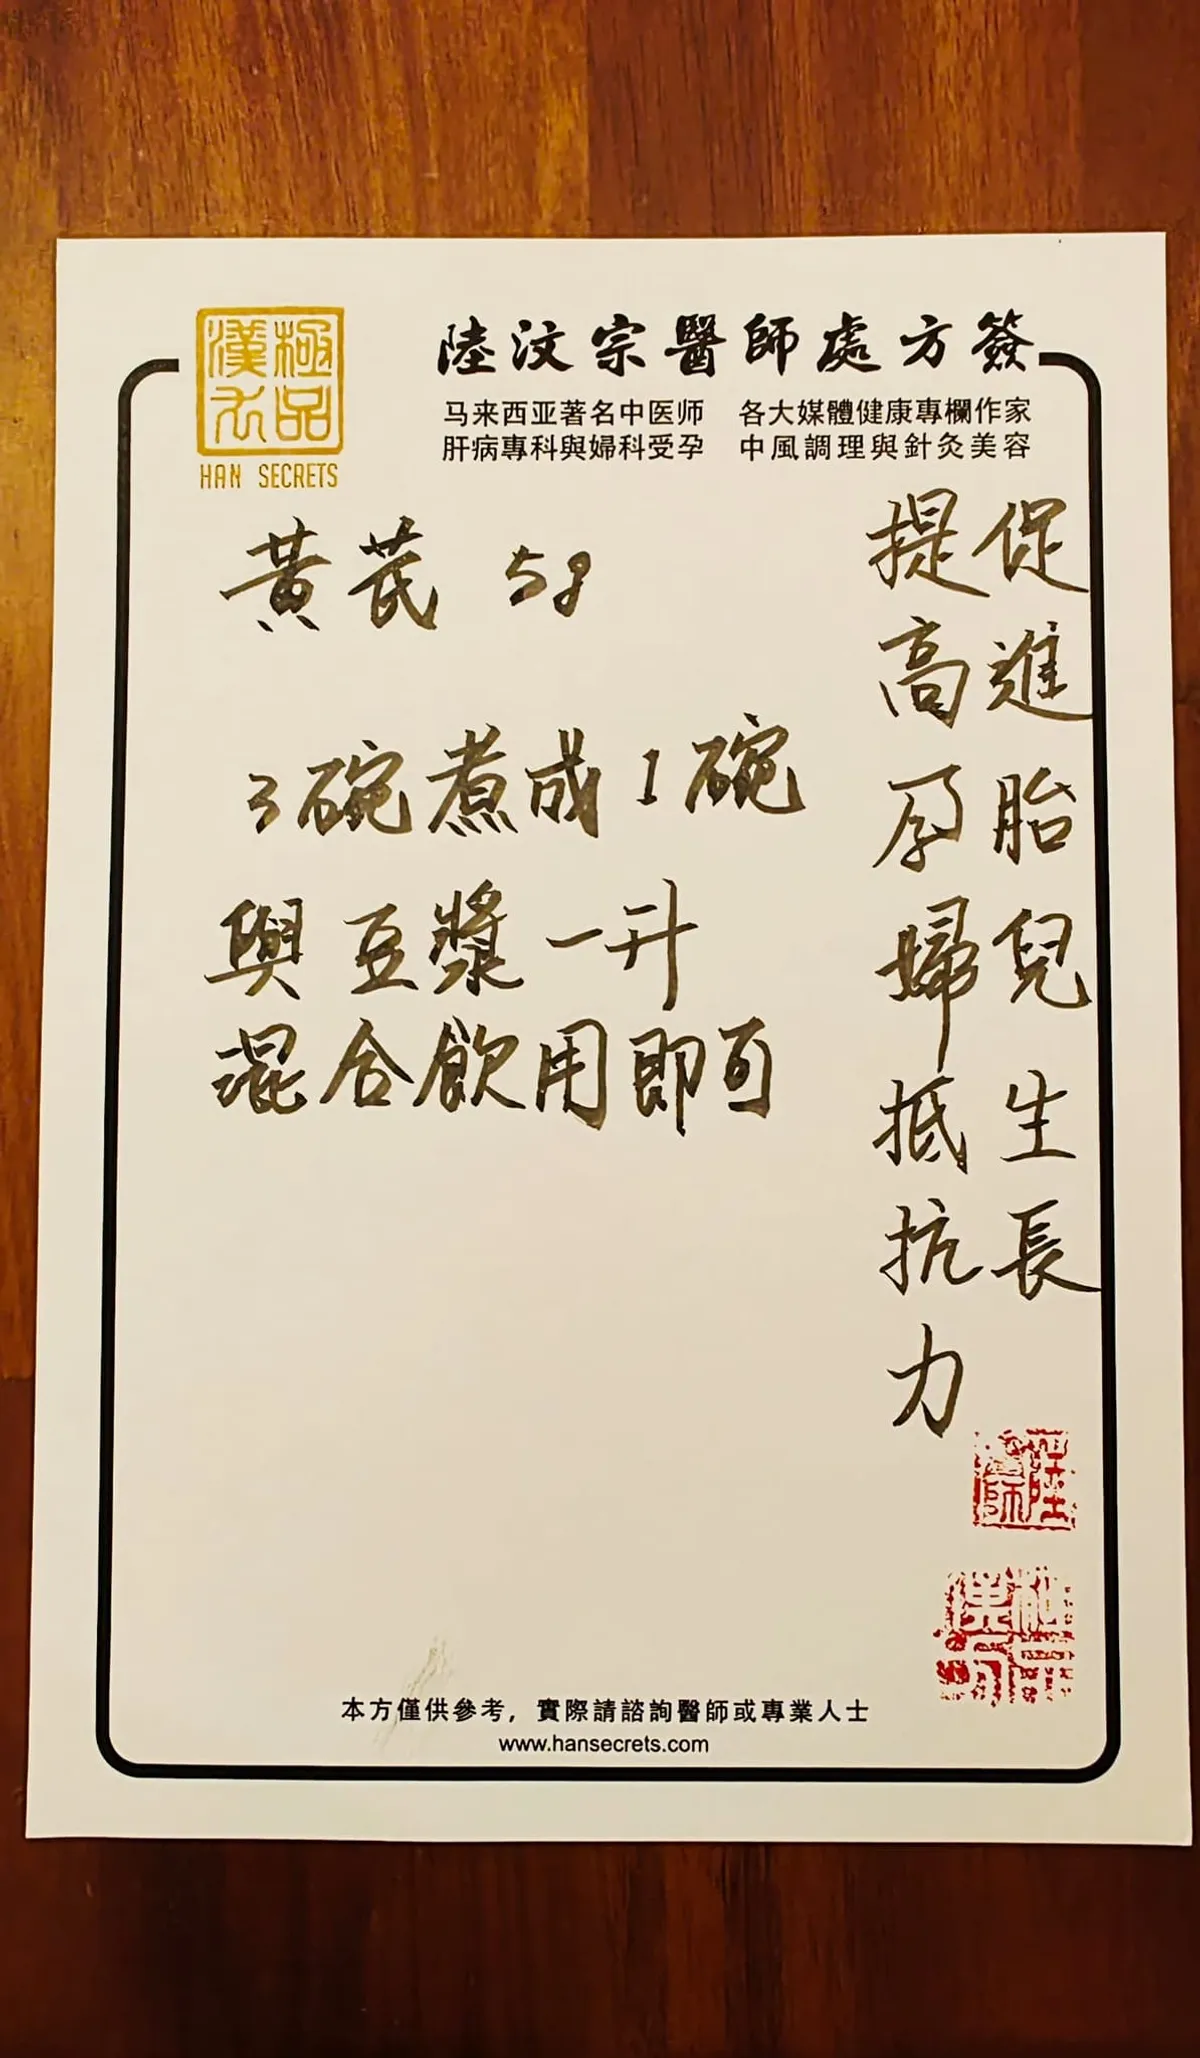 極品
漢方
HAN SECRETS
陸汶宗醫師處方簽
马来西亚著名中医师 各大媒體健康專欄作家
肝病專科與婦科受孕 中風調理與針灸美容
促進胎兒生長
提高孕婦抵抗力
黃芪 5g
3碗煮成1碗
與豆漿一升
混合飲用即可
陸醫師
本方僅供參考，實際請諮詢醫師或專業人士
www.hansecrets.com